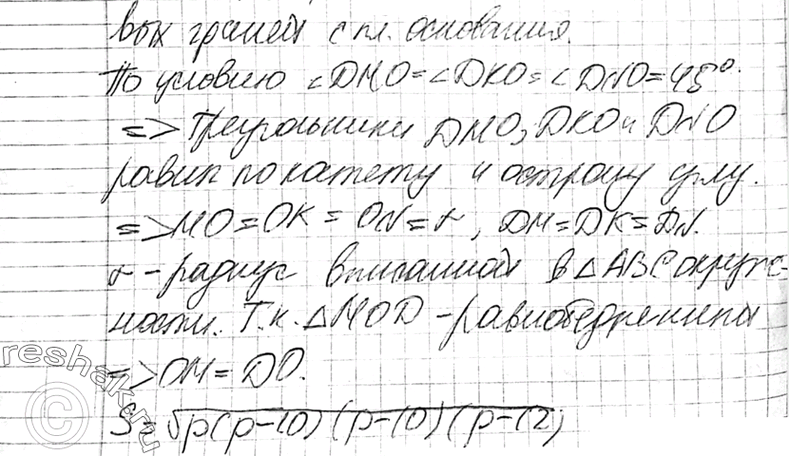 вых граней с пл. основания.
По условию ∠DMO=∠DKO=∠DNO=45°.
=> Треугольники DMO, DKO и DNO
равны по катету и острому углу.
=> MO=OK=ON=r, DM=DK=DN.
r - радиус вписанной в △ABC окруж-
ности. Т.к. △MOD - равнобедренный
=> OM=DO.
S=√p(p-10)(p-10)(p-12)
reshak.ru
©